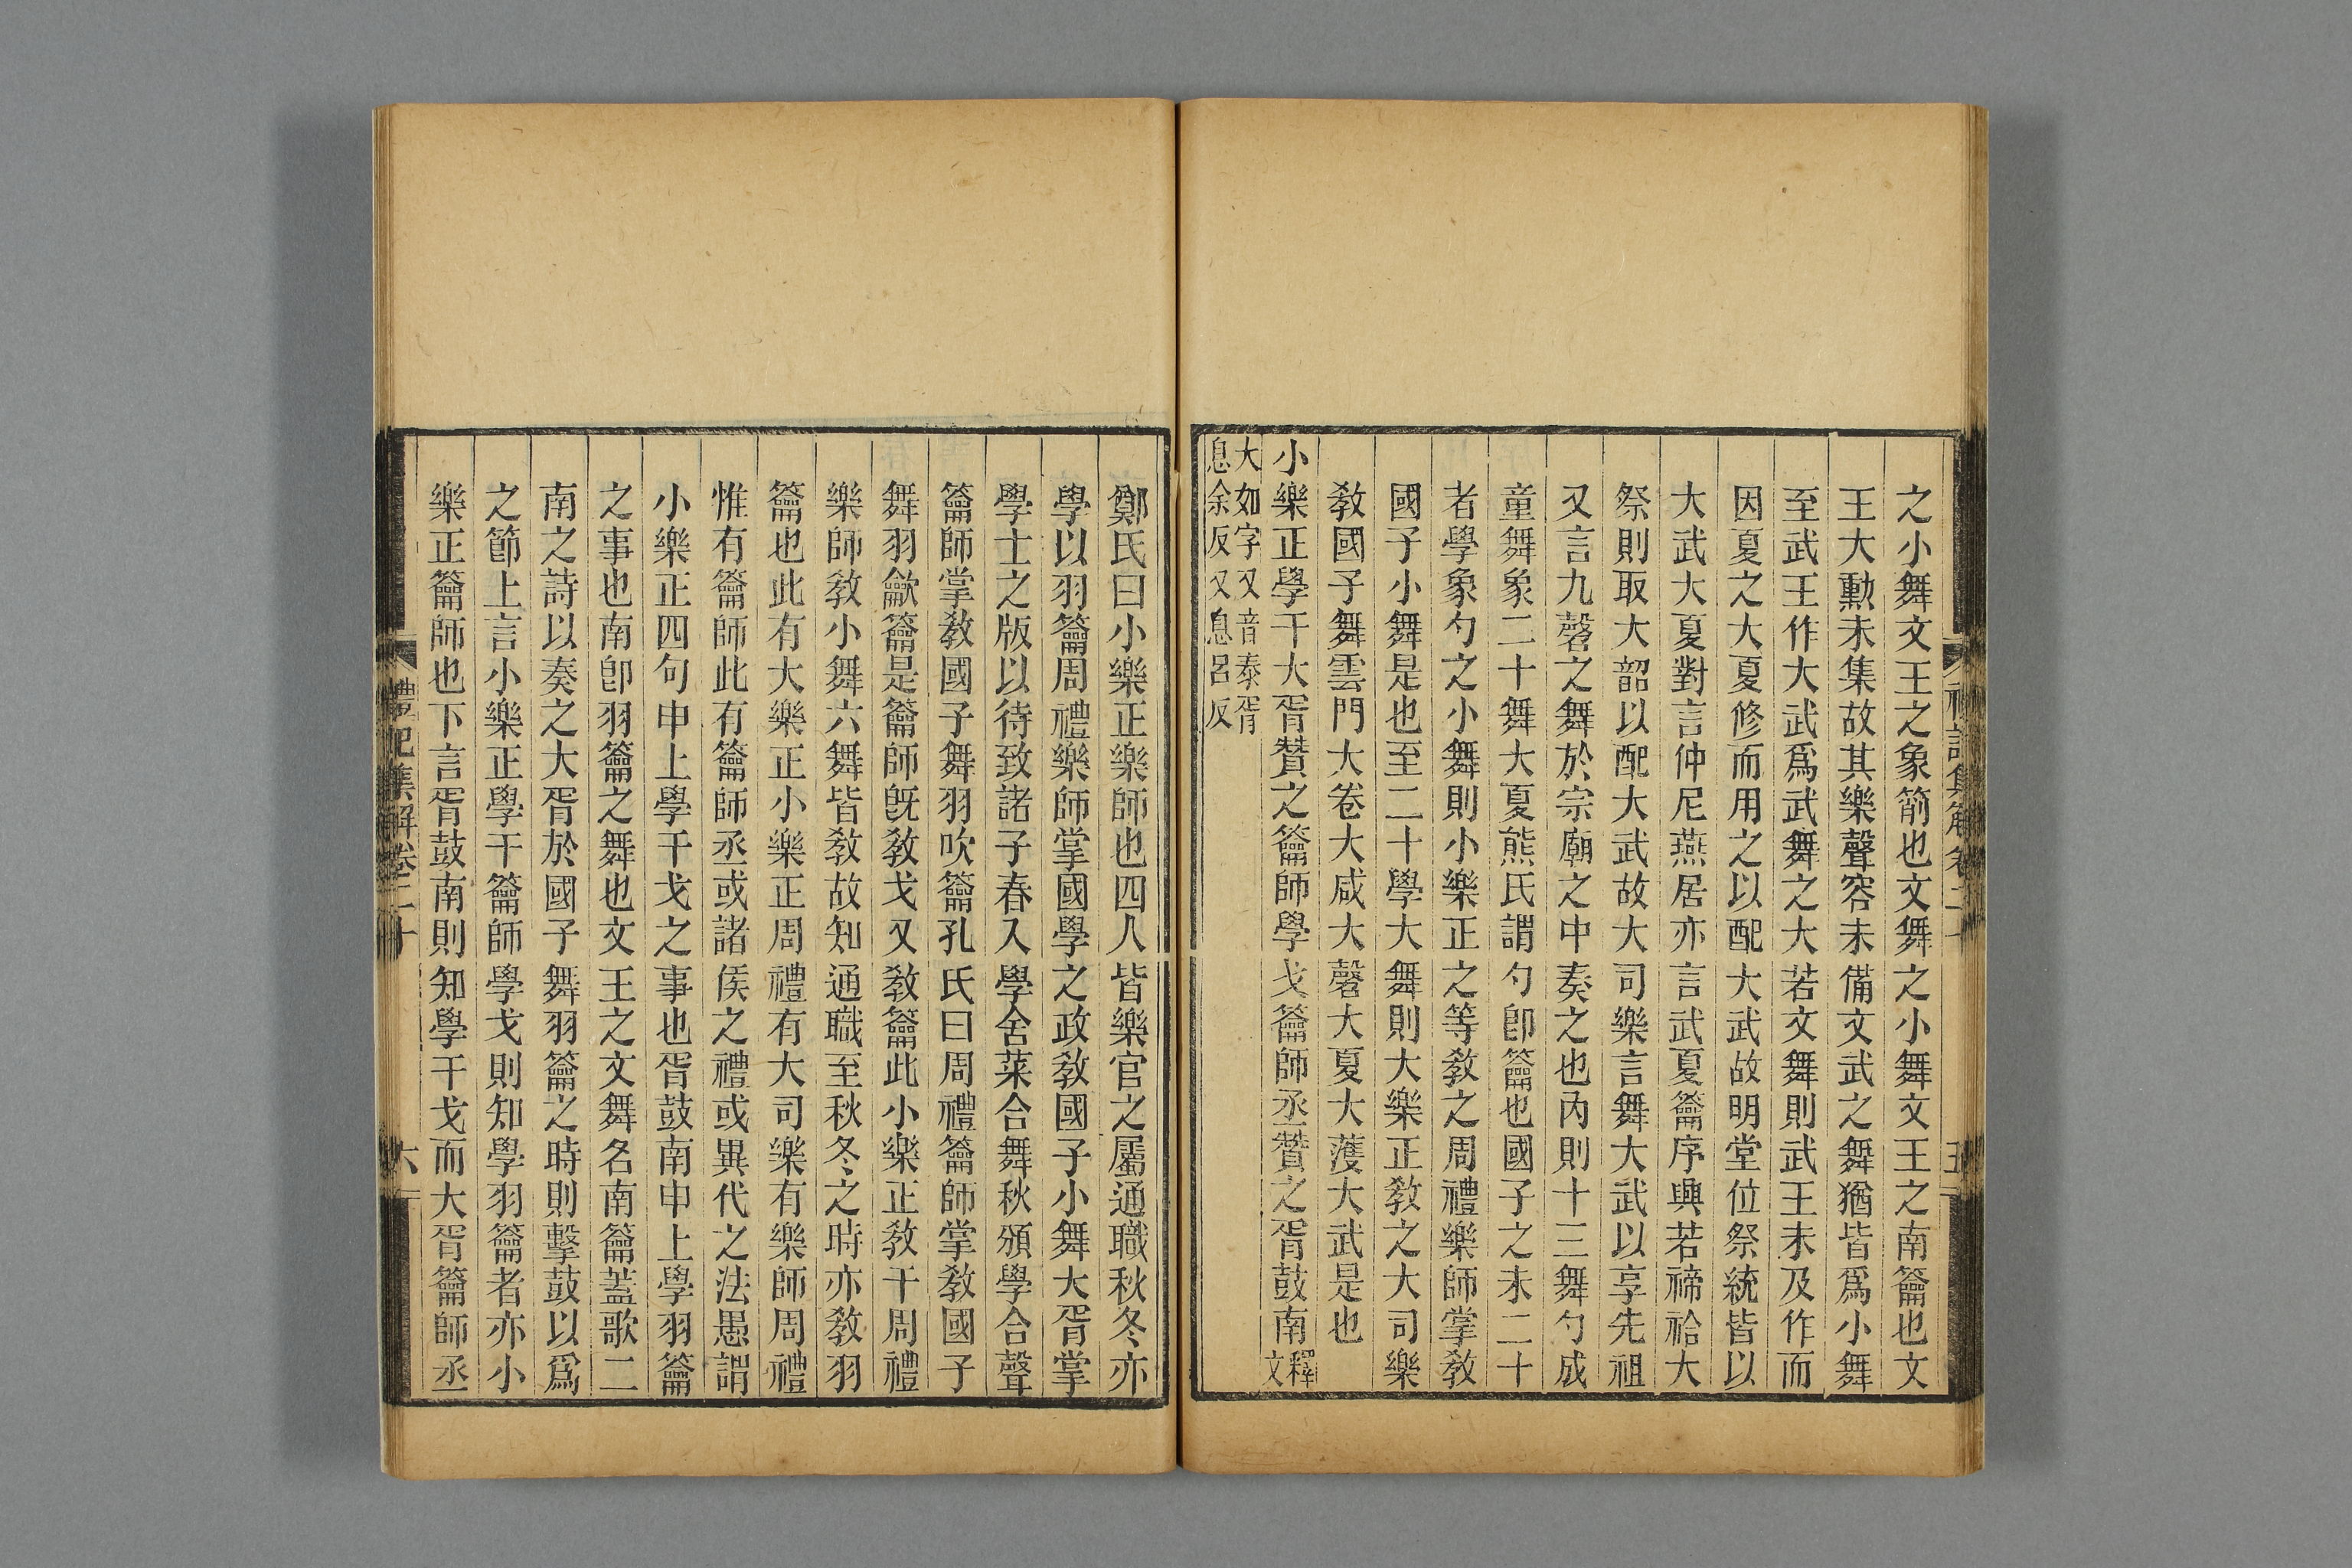 之小舞文王之象箾也文舞之小舞文王之南籥也文
王大勳未集故其樂聲容未備文武之舞猶皆爲小舞
至武王作大武爲武舞之大若文舞則武王未及作而
因夏之大夏修而用之以配大武故明堂位祭統皆以
大武大夏對言仲尼燕居亦言武夏籥序興若禘祫大
祭則取大韶以配大武故大司樂言舞大武以享先祖
又言九磬之舞於宗廟之中奏之也內則十三舞勺成
童舞象二十舞大夏熊氏謂勺卽籥也國子之未二十
者學象勺之小舞則小樂正之等敎之周禮樂師掌敎
國子小舞是也至二十學大舞則大樂正敎之大司樂
敎國子舞雲門大卷大咸大磬大夏大濩大武是也
小樂正學干大胥贊之籥師學戈籥師丞贊之胥鼓南釋文
大如字又音泰胥
息余反又息呂反
禮記集解卷二十
五
鄭氏曰小樂正樂師也四人皆樂官之屬通職秋冬亦
學以羽籥周禮樂師掌國學之政敎國子小舞大胥掌
學士之版以待致諸子春入學舍菜合舞秋頒學合聲
籥師掌敎國子舞羽吹籥孔氏曰周禮籥師掌敎國子
舞羽龡籥是籥師旣敎戈又敎籥此小樂正敎干周禮
樂師敎小舞六舞皆敎故知通職至秋冬之時亦敎羽
籥也此有大樂正小樂正周禮有大司樂有樂師周禮
惟有籥師此有籥師丞或諸侯之禮或異代之法愚謂
小樂正四句申上學干戈之事也胥鼓南申上學羽籥
之事也南卽羽籥之舞也文王之文舞名南籥蓋歌二
南之詩以奏之大胥於國子舞羽籥之時則擊鼓以爲
之節上言小樂正學干籥師學戈則知學羽籥者亦小
樂正籥師也下言胥鼓南則知學干戈而大胥籥師丞
禮記集解卷二十
六